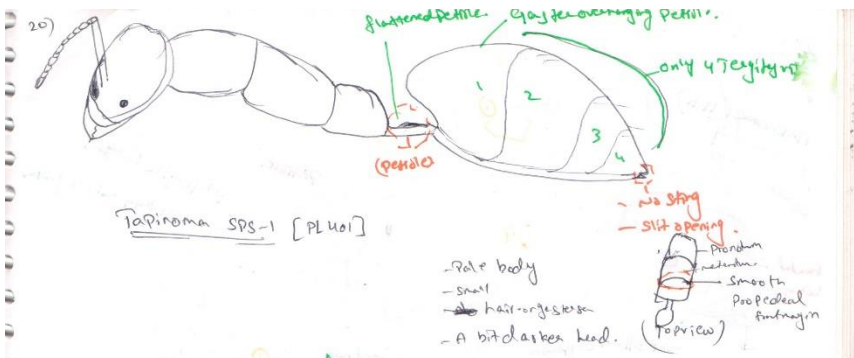 20)
flattened Petiole.
Gaster overhanging Petiole.
only 4 Tergites
1
2
3
4
(petiole)
- No sting
- Slit opening.
Tapinoma SPS-1 [PL401]
- Pale body
- Small
- hair-
- A bit darker head.
Pronotum
Smooth
(Topview)